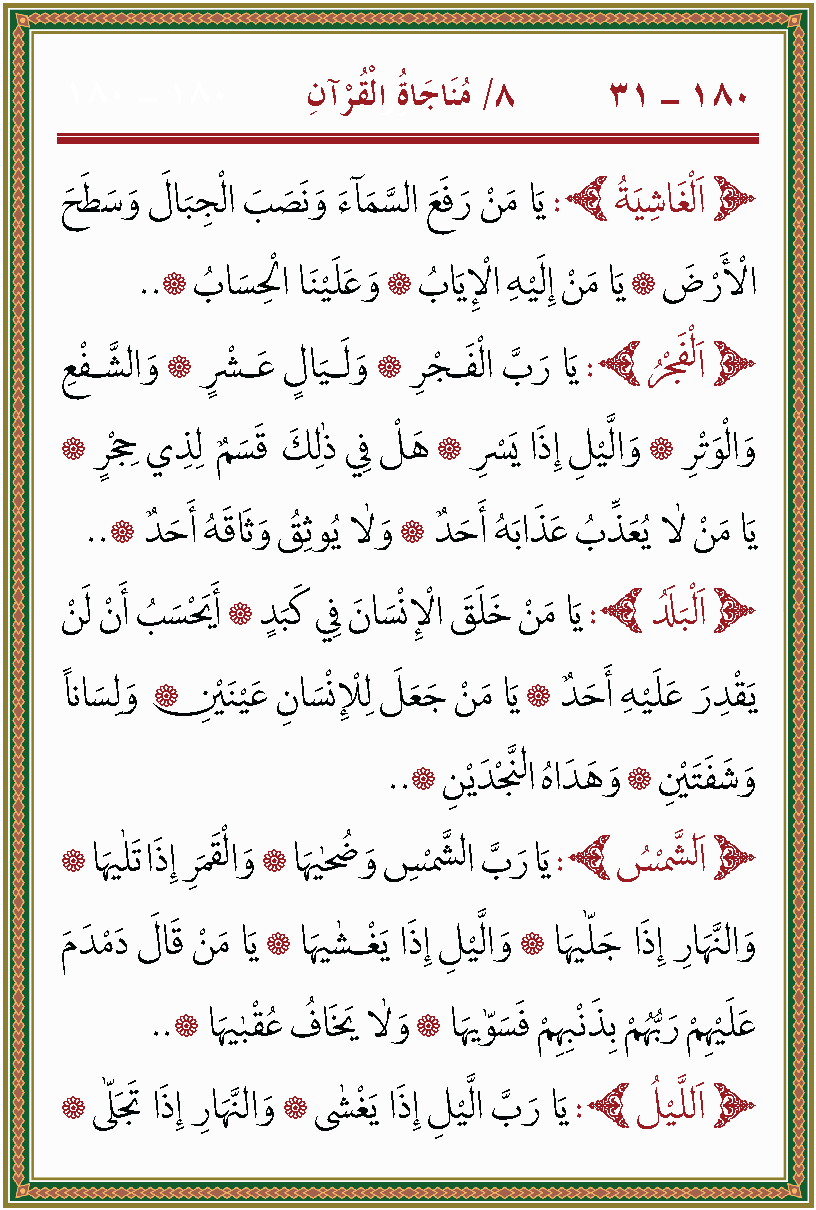 ١٨٠ – ٣١ ٨/ مُنَاجَاةُ الْقُرْآنِ
﴿ اَلْغَاشِيَةُ ﴾ : يَا مَنْ رَفَعَ السَّمَآءَ وَنَصَبَ الْجِبَالَ وَسَطَحَ
الْأَرْضَ ۞ يَا مَنْ إِلَيْهِ الْإِيَابُ ۞ وَعَلَيْنَا الْحِسَابُ ۞..
﴿ اَلْفَجْرُ ﴾ : يَا رَبَّ الْفَـجْرِ ۞ وَلَـيَـالٍ عَـشْرٍ ۞ وَالشَّـفْعِ
وَالْوَتْرِ ۞ وَاللَّيْلِ إِذَا يَسْرِ ۞ هَلْ فِي ذٰلِكَ قَسَمٌ لِذِي حِجْرٍ ۞
يَا مَنْ لاٰ يُعَذِّبُ عَذَابَهُ أَحَدٌ ۞ وَلاٰ يُوثِقُ وَثَاقَهُ أَحَدٌ ۞..
﴿ اَلْبَلَدُ ﴾ : يَا مَنْ خَلَقَ الْإِنْسَانَ فِي كَبَدٍ ۞ أَيَحْسَبُ أَنْ لَنْ
يَقْدِرَ عَلَيْهِ أَحَدٌ ۞ يَا مَنْ جَعَلَ لِلْإِنْسَانِ عَيْنَيْنِ ۞ وَلِسَاناً
وَشَفَتَيْنِ ۞ وَهَدَاهُ النَّجْدَيْنِ ۞..
﴿ اَلشَّمْسُ ﴾ : يَا رَبَّ الشَّمْسِ وَضُحٰيهَا ۞ وَالْقَمَرِ إِذَا تَلٰيهَا ۞
وَالنَّهَارِ إِذَا جَلّٰيهَا ۞ وَاللَّيْلِ إِذَا يَغْـشٰيهَا ۞ يَا مَنْ قَالَ دَمْدَمَ
عَلَيْهِمْ رَبُّهُمْ بِذَنْبِهِمْ فَسَوّٰيهَا ۞ وَلاٰ يَخَافُ عُقْبٰيهَا ۞..
﴿ اَللَّيْلُ ﴾ : يَا رَبَّ اللَّيْلِ إِذَا يَغْشٰى ۞ وَالنَّهَارِ إِذَا تَجَلّٰى ۞